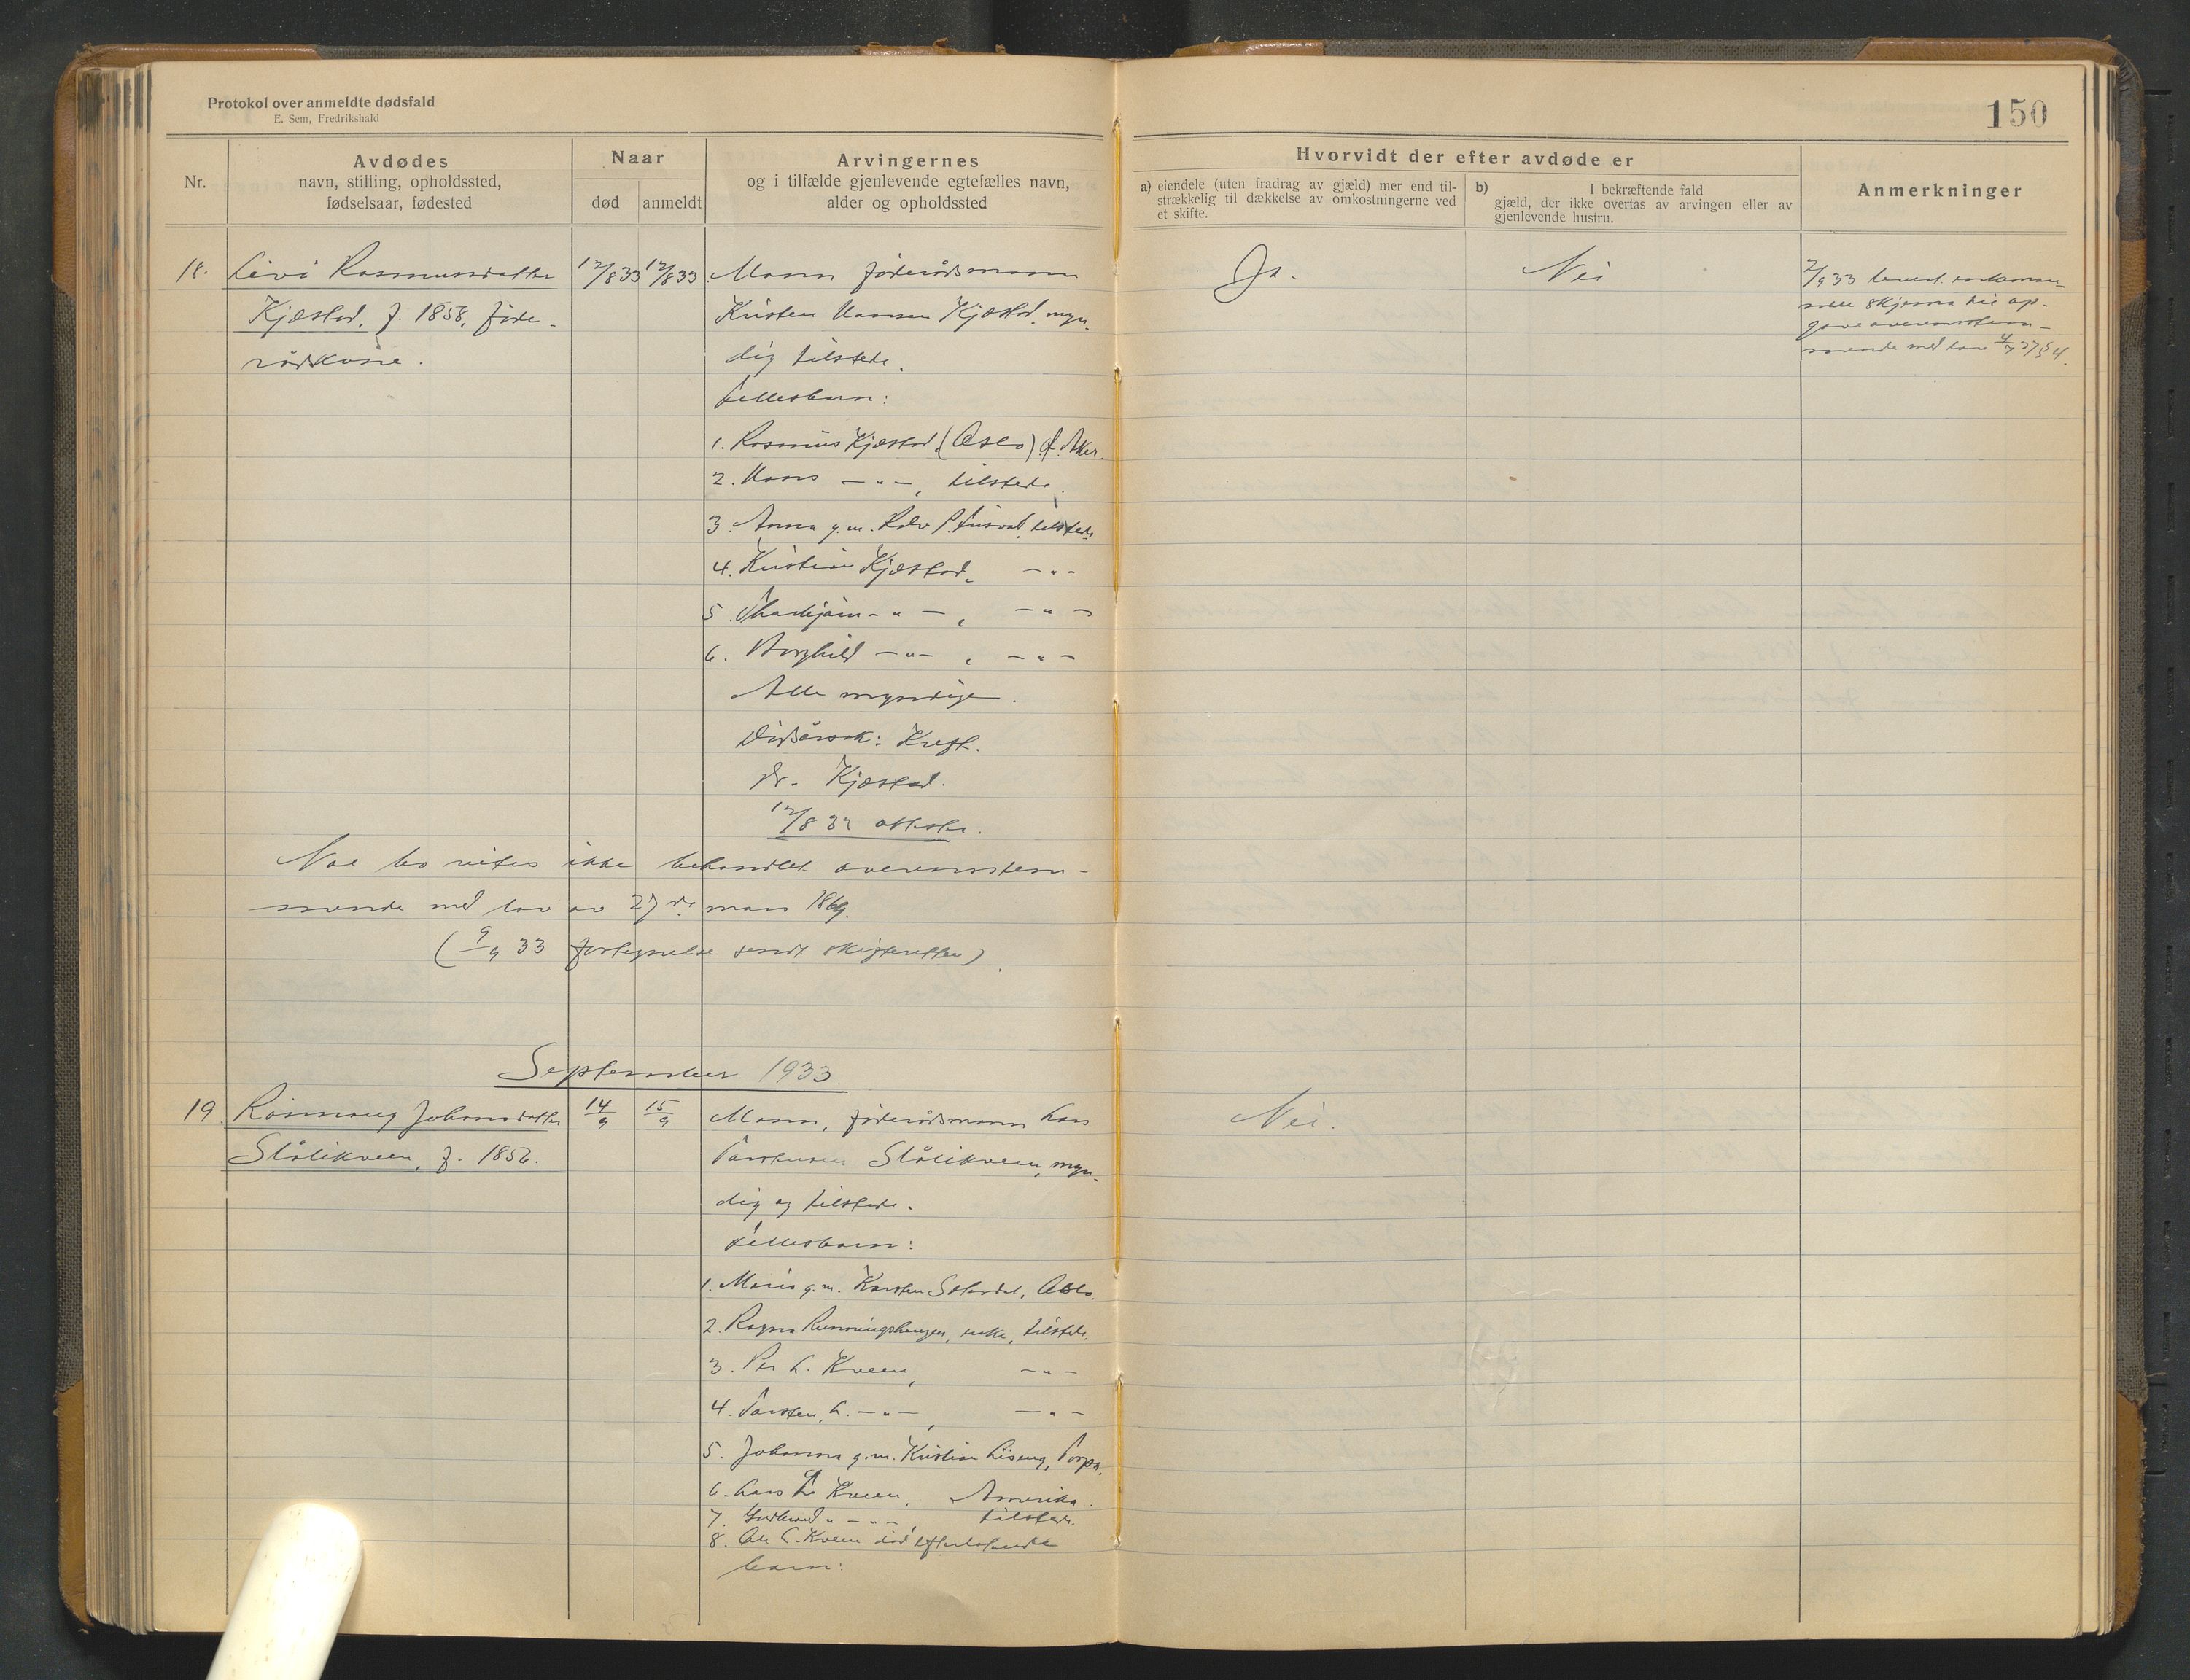 Protokol over anmeldte dødsfald
E. Sem, Fredrikshald
150
Nr.
Avdødes
navn, stilling, opholdssted,
fødselsaar, fødested
Naar
død
anmeldt
Arvingernes
og i tilfælde gjenlevende egtefælles navn,
alder og opholdssted
Hvorvidt der efter avdøde er
a) eiendele (uten fradrag av gjæld) mer end til-
strækkelig til dækkelse av omkostningerne ved
et skifte.
b) I bekræftende fald
gjæld, der ikke overtas av arvingen eller av
gjenlevende hustru.
Anmerkninger
18. Livi Rasmusdatter
Kjæstad, f. 1858, føde-
rådskone.
12/8 33
12/8 33
Mann føderådsmann
Kristen Hansen Kjæstad, myn-
dig tilstede.
Fellesbarn:
1. Rasmus Kjæstad, (Oslo) Ø. Aker.
2. Hans -"-, tilstede.
3. Anna g.m. tilstede
4. Kristian Kjæstad, -"-
5. -"-, -"-
6. Borghild -"-, -"-
Alle myndige.
Dødsårsak: Kreft.
Dr. Kjæstad.
12/8 33 attester.
Ja.
Nei
2/9 33 levert
skjema til op-
gave overensstem-
mende med lov 4/7 27 § 4.
bo ikke behandlet overensstem-
mende med lov av 27de mars 1869.
(9/9 33 fortegnelse sendt skifteretten).
September 1933
19. Rønnaug Johannsdatter
Slålikveen, f. 1856.
14/9
15/9
Mann, føderådsmann Lars
Torstensen Slålikveen, myn-
dig og tilstede.
Fellesbarn:
1. Maria g.m. Karsten Oslo.
2. Ragna enke, tilstede.
3. Per L. Kveen, -"-
4. Torsten L. -"-, -"-
5. Johanna g.m. Kristian Liseng, Torpa.
6. Lars L. Kveen, Amerika.
7. Gudbrand " -"-, tilstede.
8. Ole L. Kveen død efterlatende
barn:
Nei.